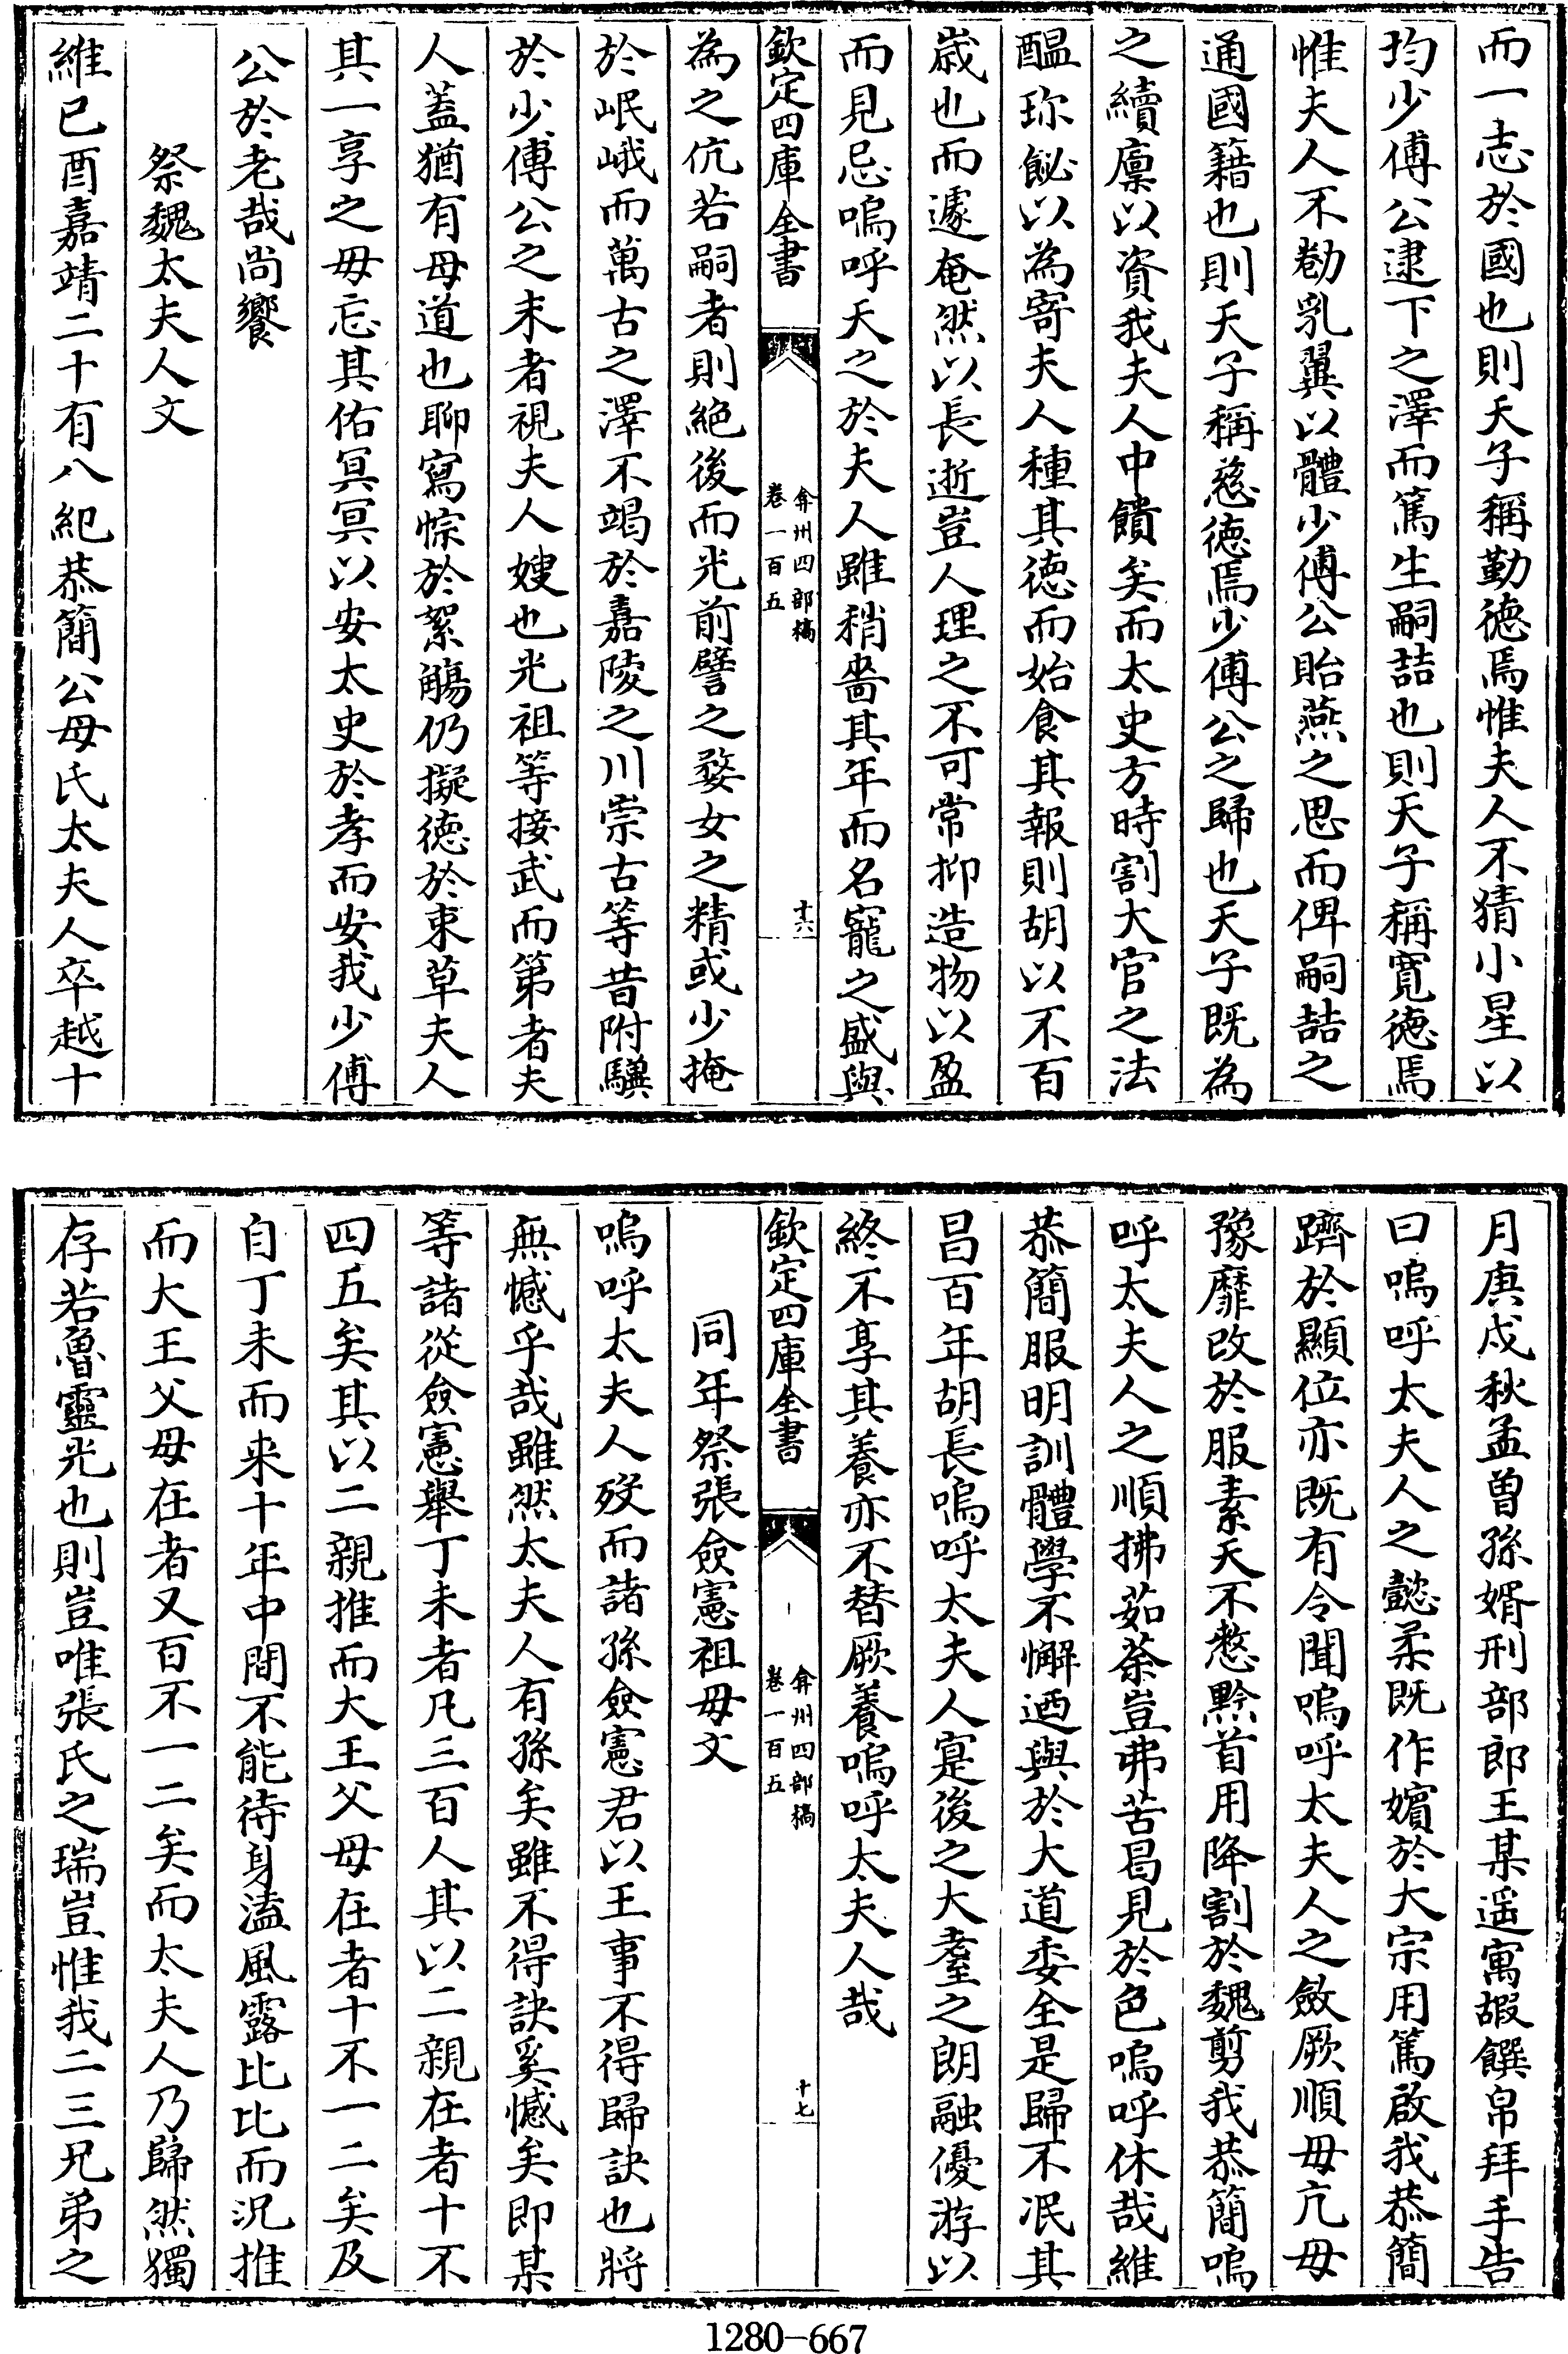 而一志於國也則天子稱勤徳焉惟夫人不猜小星以
均少傅公逮下之澤而篤生嗣喆也則天子稱寛徳焉
惟夫人不勌乳翼以體少傅公貽燕之思而俾嗣喆之
通國籍也則天子稱慈徳焉少傅公之歸也天子既為
之續廩以資我夫人中饋矣而太史方時割大官之法
醖珎飶以為寄夫人種其徳而始食其報則胡以不百
歳也而遽奄然以長逝豈人理之不可常抑造物以盈
而見忌嗚呼天之於夫人雖稍嗇其年而名寵之盛與
欽定四庫全書
弇州四部稿
卷一百五
十六
為之伉若嗣者則絶後而光前譬之婺女之精或少掩
於岷峨而萬古之澤不竭於嘉陵之川崇古等昔附驥
於少傅公之末者視夫人嫂也光祖等接武而第者夫
人蓋猶有母道也聊寫悰於絮觴仍擬徳於束草夫人
其一享之毋忘其佑冥冥以安太史於孝而安我少傅
公於老哉尚饗
祭魏太夫人文
維已酉嘉靖二十有八紀恭簡公母氏太夫人卒越十
月庚戍秋孟曽孫婿刑部郎王某遥寓嘏饌帛拜手告
曰嗚呼太夫人之懿柔既作嬪於大宗用篤啟我恭簡
躋於顯位亦既有令聞嗚呼太夫人之斂厥順毋亢毋
豫靡改於服素天不憗黔首用降割於魏剪我恭簡嗚
呼太夫人之順拂茹荼豈弗苦曷見於色嗚呼休哉維
恭簡服明訓體學不懈迺與於大道委全是歸不冺其
昌百年胡長嗚呼太夫人寔後之大耋之朗融優游以
終不享其養亦不替厥養嗚呼太夫人哉
欽定四庫全書
弇州四部稿
卷一百五
十七
同年祭張僉憲祖母文
嗚呼太夫人歿而諸孫僉憲君以王事不得歸訣也將
無憾乎哉雖然太夫人有孫矣雖不得訣奚憾矣即某
等諸從僉憲舉丁未者凡三百人其以二親在者十不
四五矣其以二親推而大王父母在者十不一二矣及
自丁未而来十年中間不能待身溘風露比比而況推
而大王父母在者又百不一二矣而太夫人乃歸然獨
存若魯靈光也則豈唯張氏之瑞豈惟我二三兄弟之
1280-667